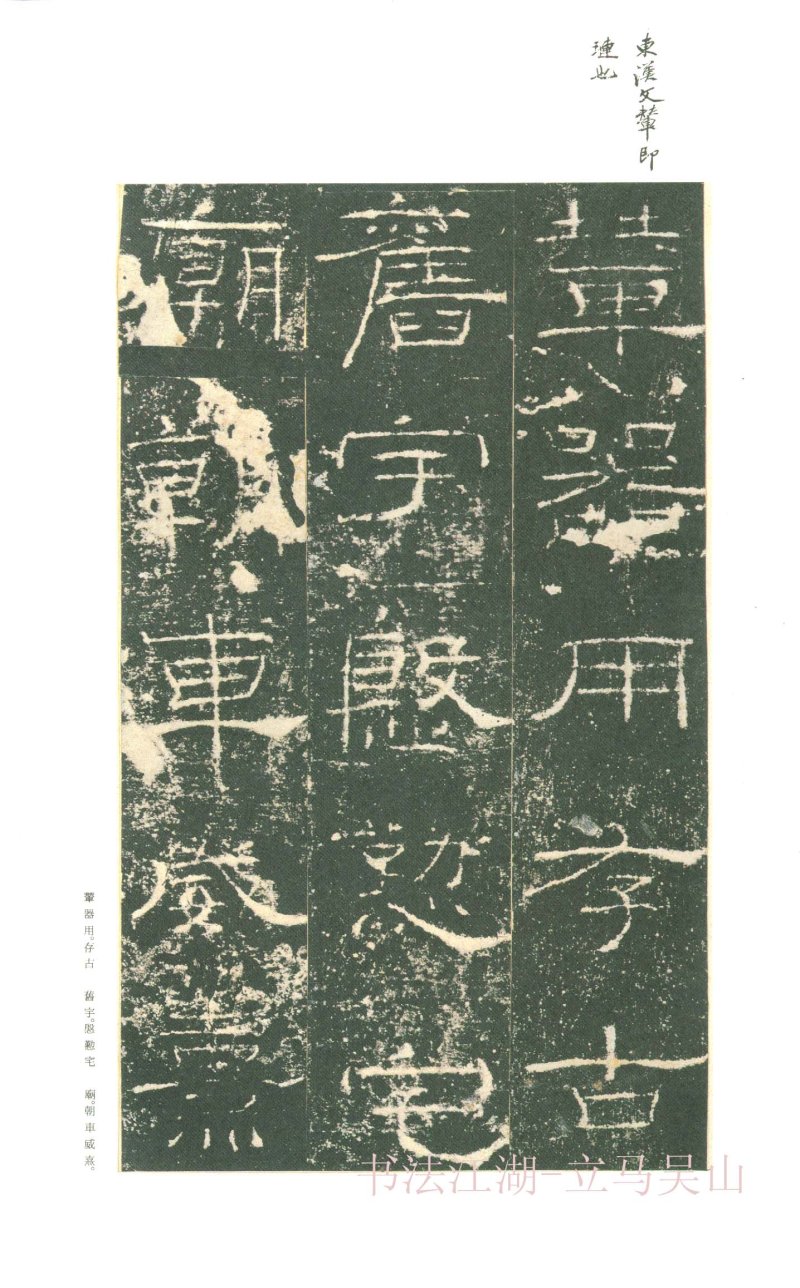 東漢文輦即
璉也
輦器用存古
舊宇慇懃宅
廟朝車威熹
輦器用。存古　舊宇。慇懃宅　廟。朝車威熹。
书法江湖-立马吴山